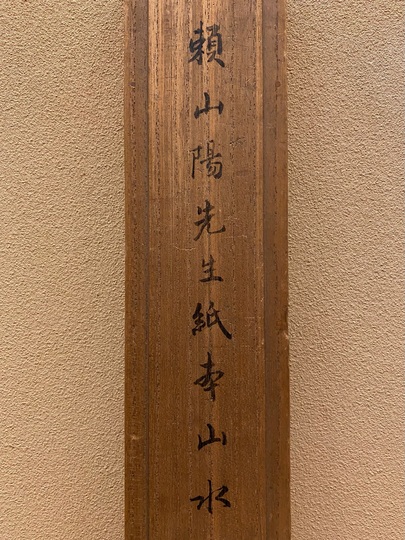 頼山陽先生紙本山水